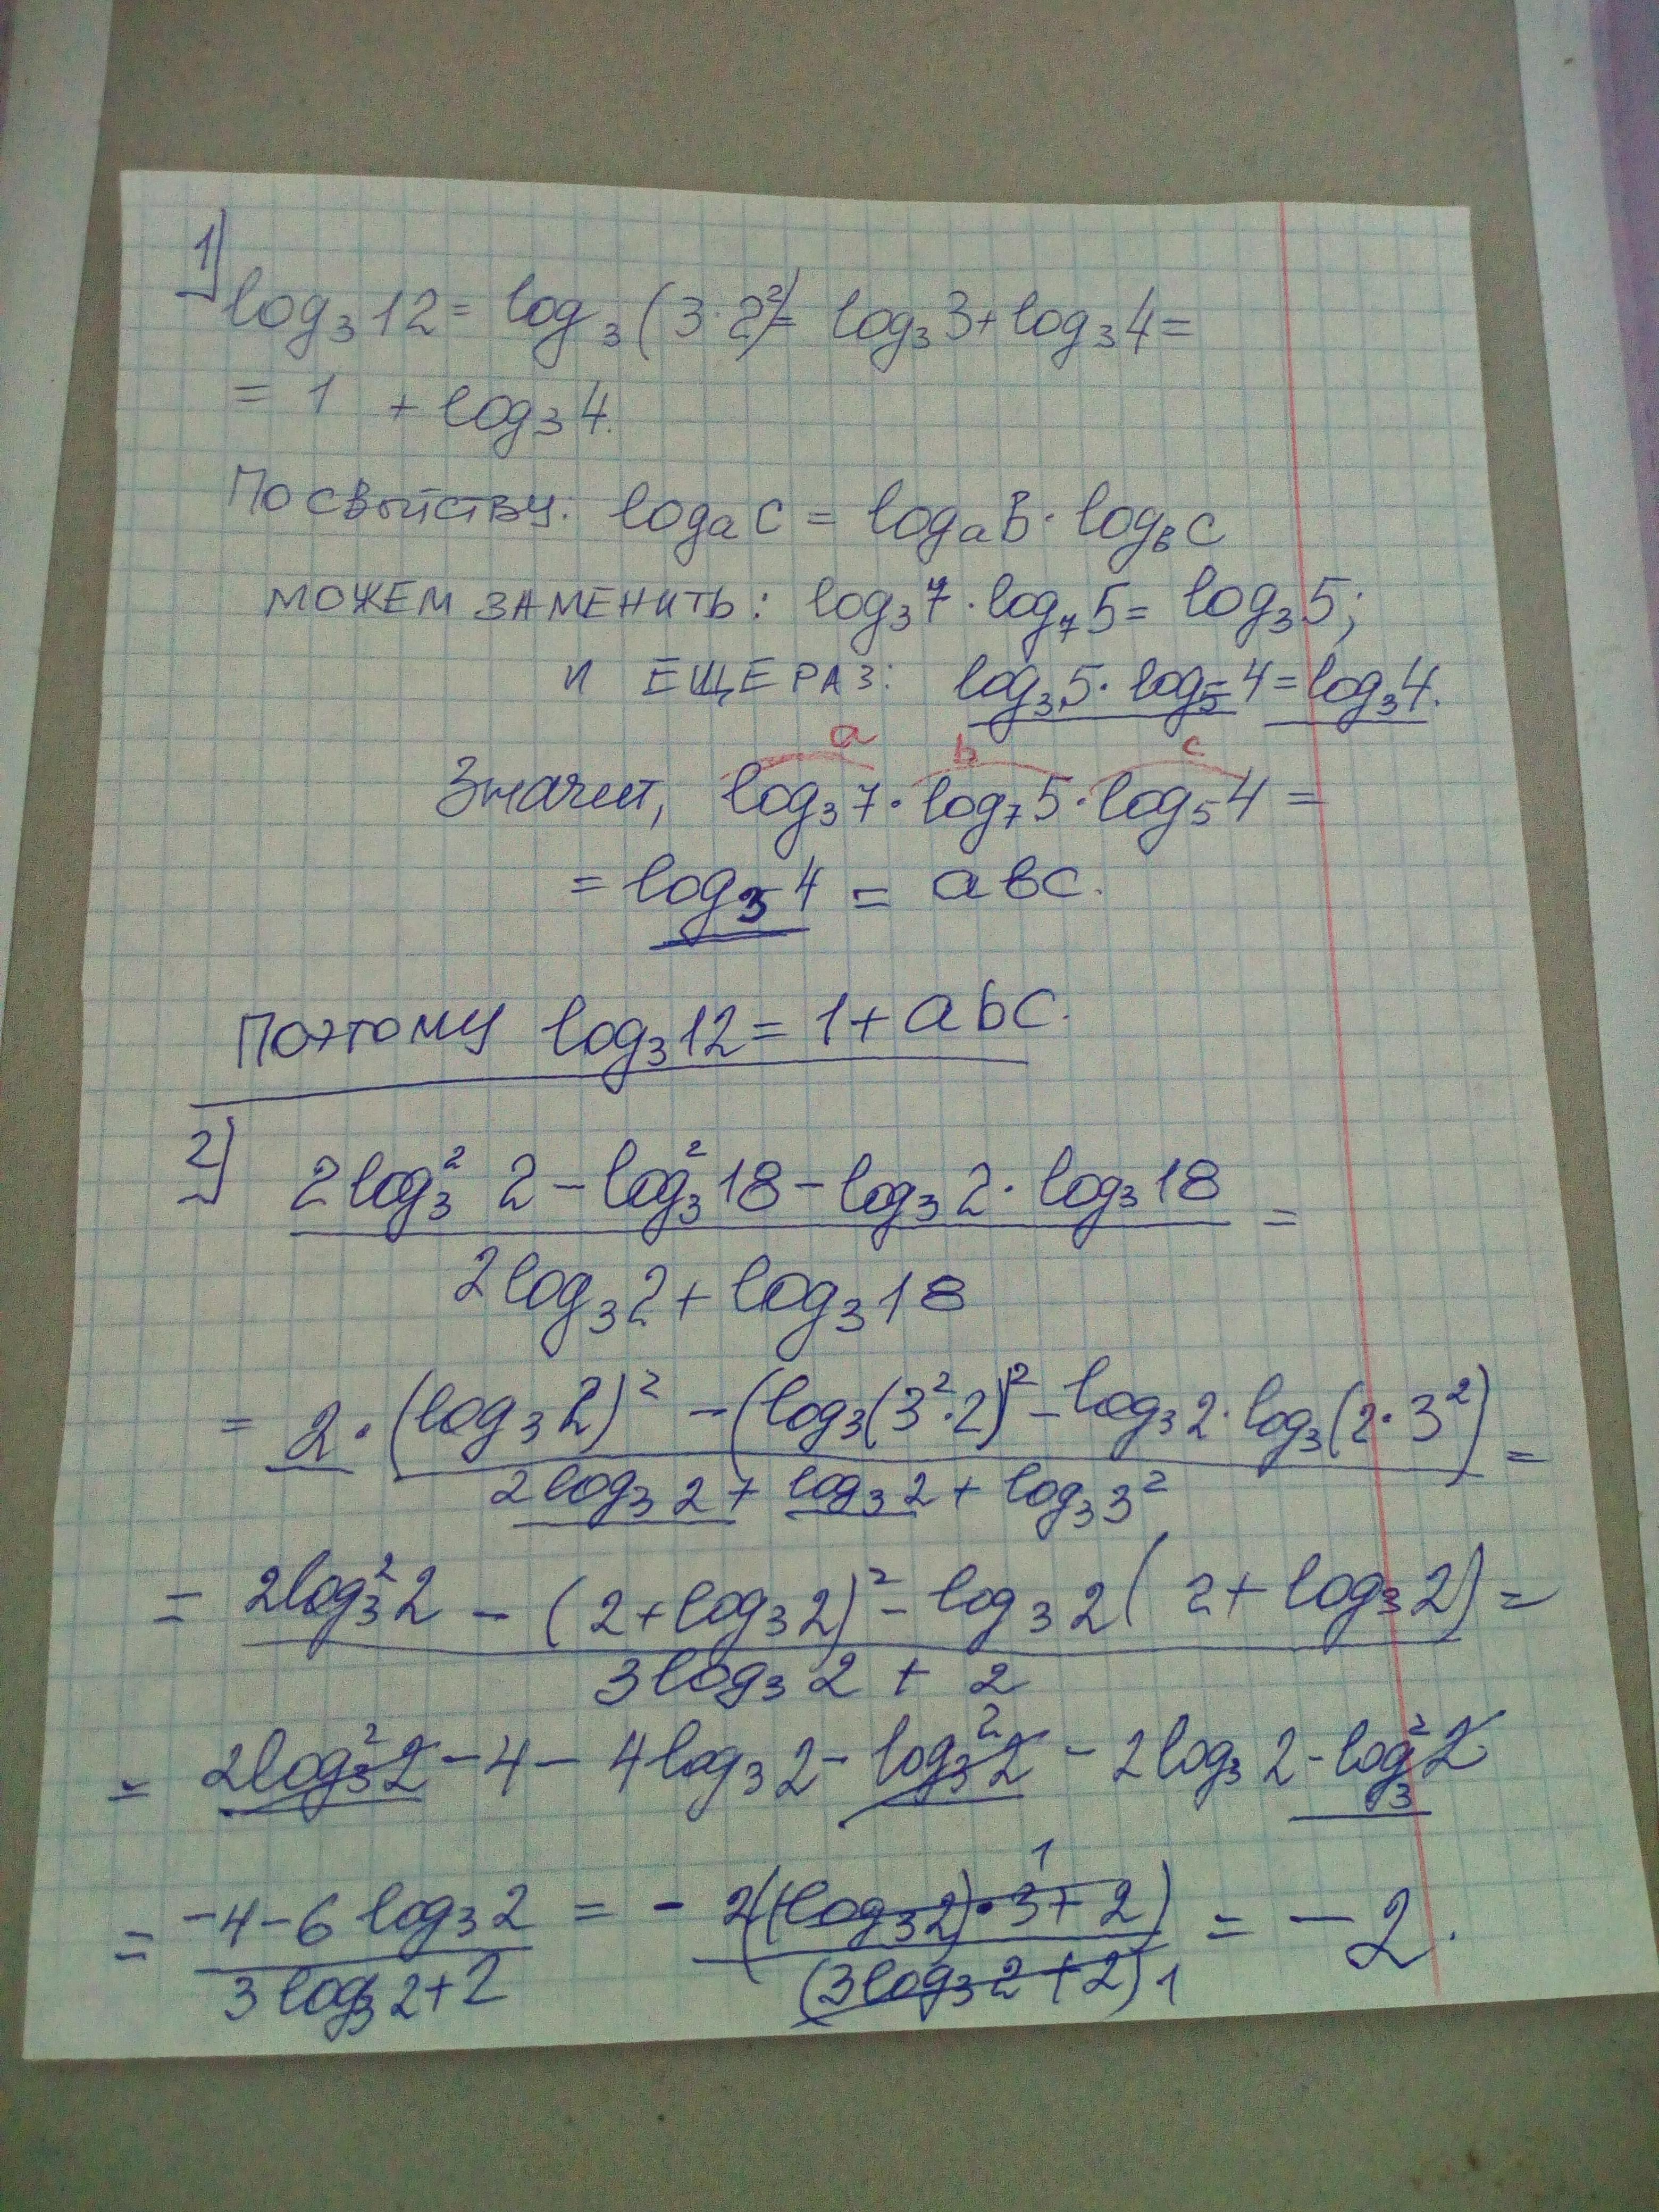 1)
log₃12 = log₃(3·2²) = log₃3 + log₃4 =
= 1 + log₃4.
По свойству: logₐC = logₐB · log_B C
МОЖЕМ ЗАМЕНИТЬ: log₃7 · log₇5 = log₃5;
И ЕЩЕ РАЗ: log₃5 · log₅4 = log₃4.
a b c
Значит, log₃7 · log₇5 · log₅4 =
= log₃4 = abc.
Поэтому log₃12 = 1 + abc.
2)
2log₃²2 − log₃²18 − log₃2 · log₃18 =
2log₃2 + log₃18
= 2·(log₃2)² − (log₃(3²·2)² − log₃2 · log₃(2·3²) =
2log₃2 + log₃2 + log₃3²
= 2log₃²2 − (2 + log₃2)² − log₃2(2 + log₃2) =
3log₃2 + 2
= 2log₃²2 − 4 − 4log₃2 − log₃²2 − 2log₃2 − log₃²2
1
= −4 − 6log₃2 = − 2((log₃2)·3 + 2) = −2.
3log₃2 + 2 (3log₃2 + 2) 1